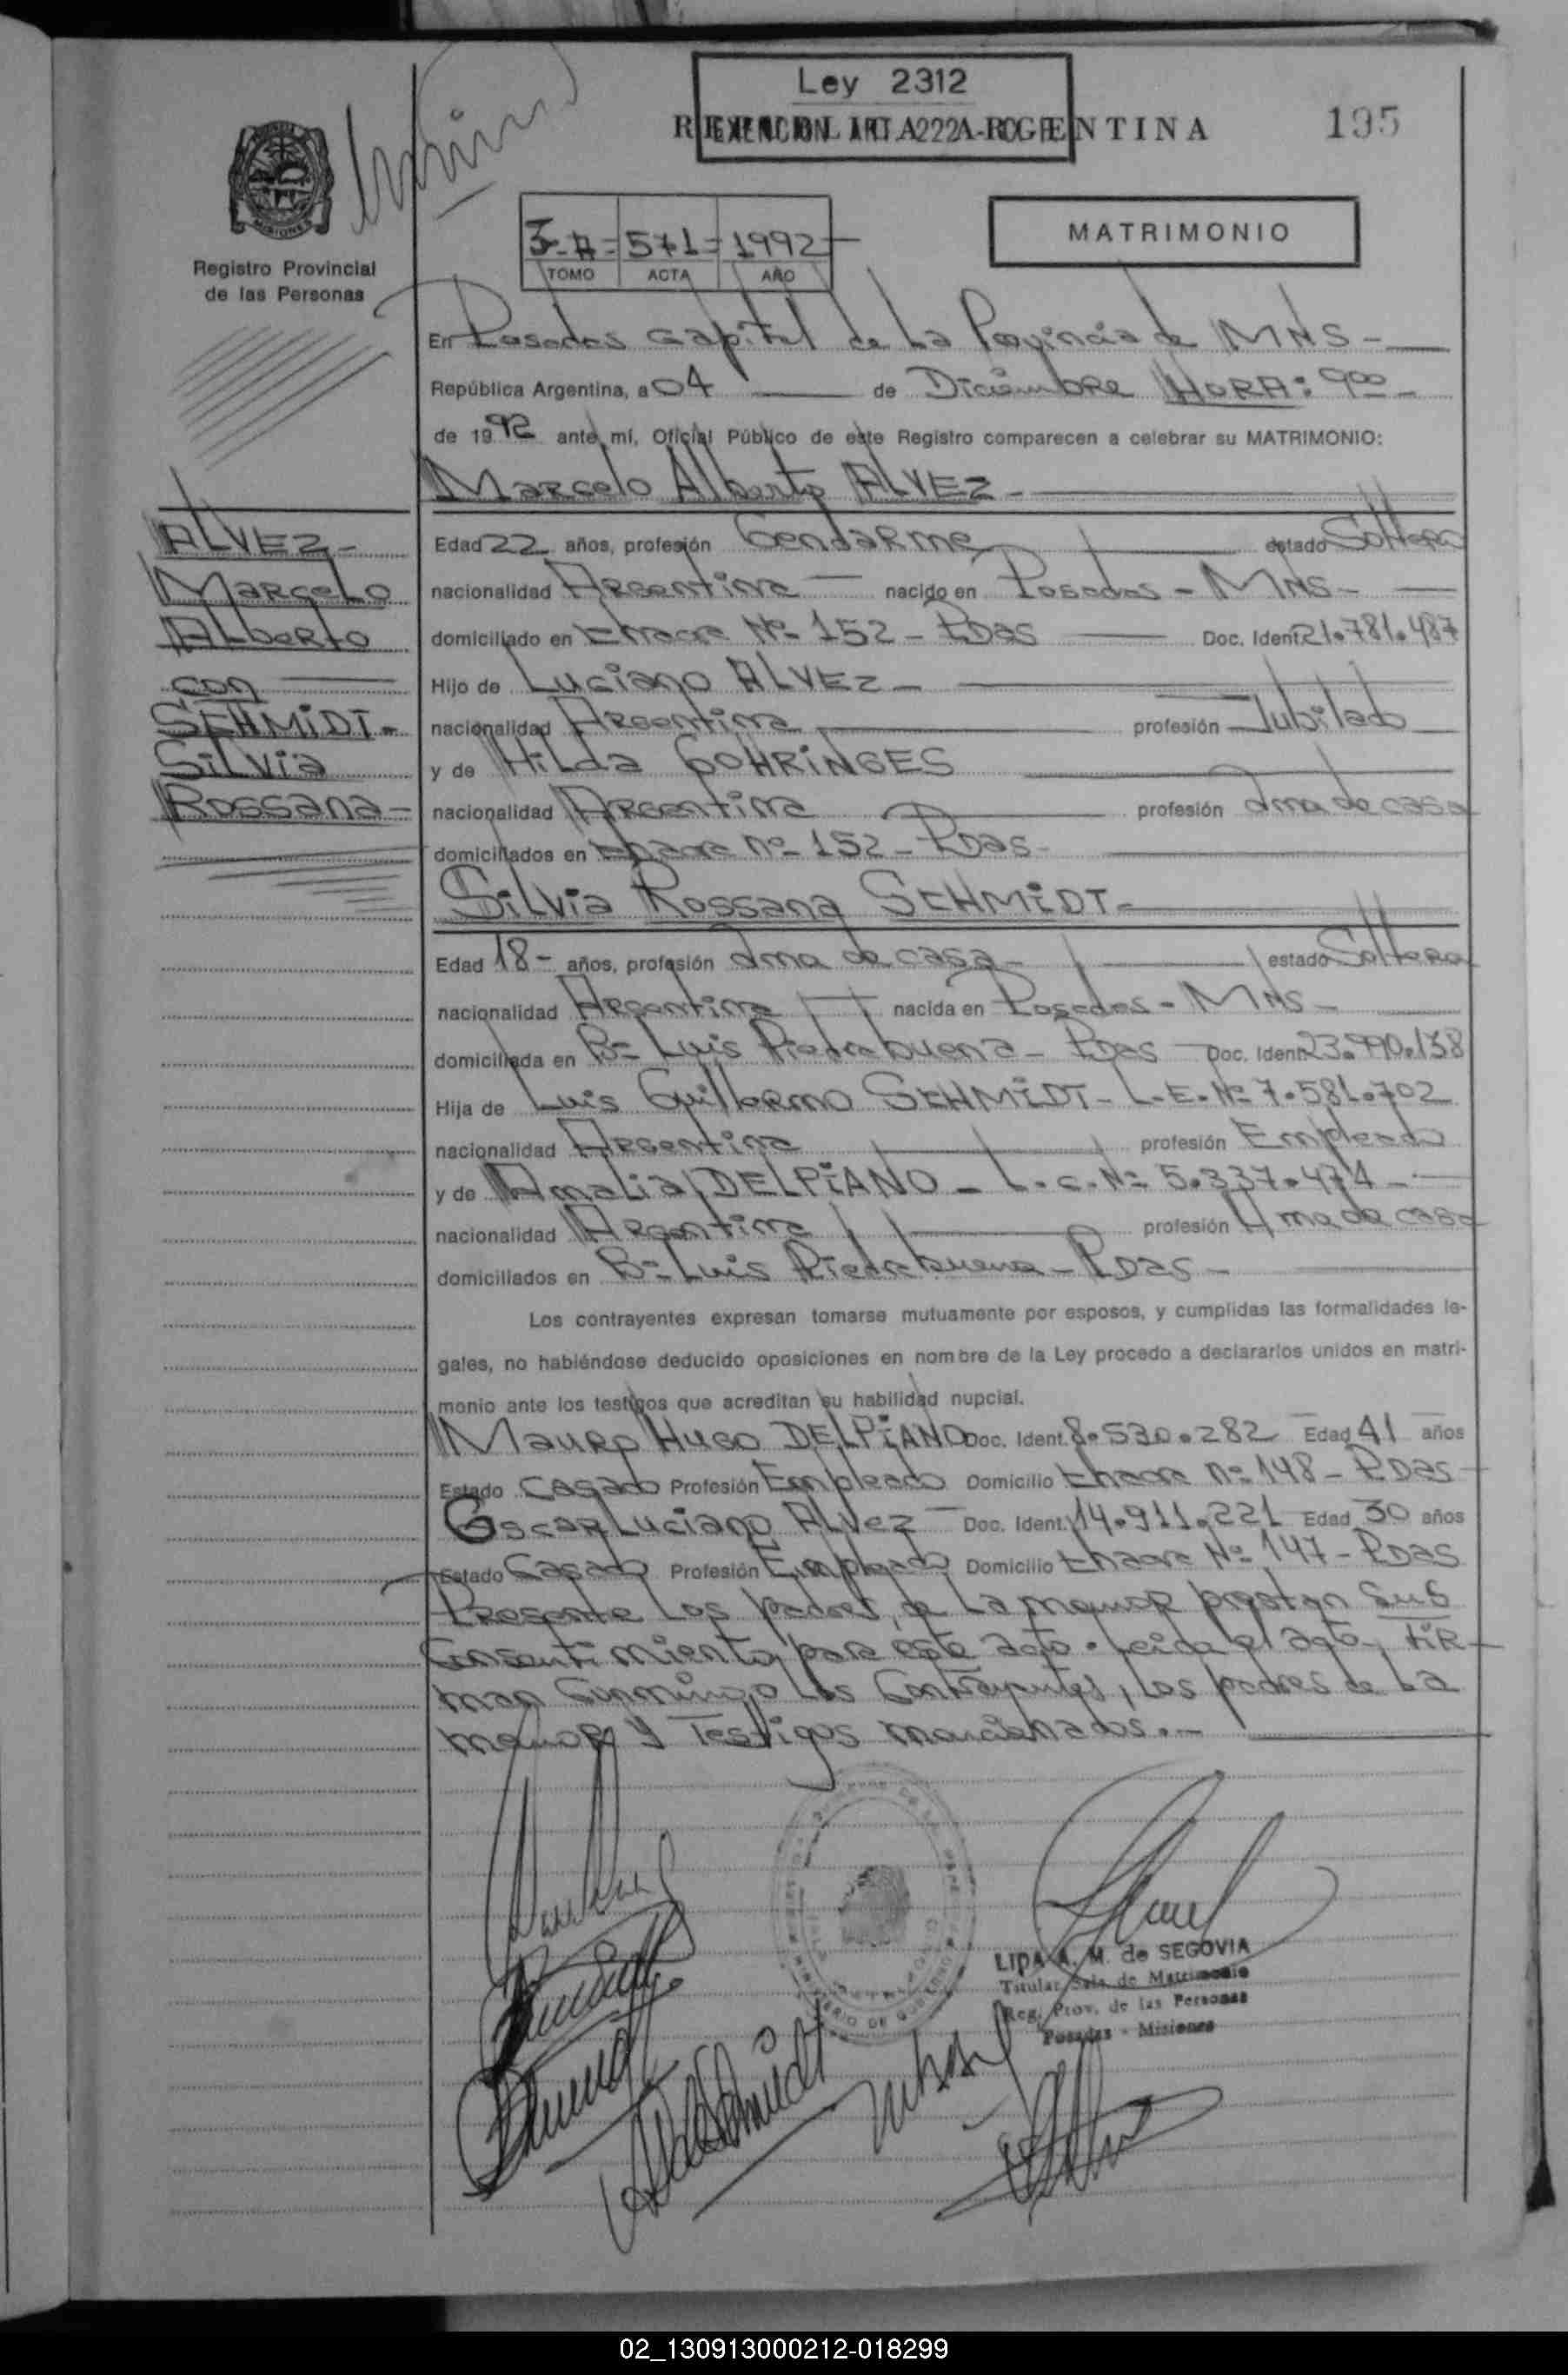 Ley 2312
EXENCION ART. 222-
REPUBLICA ARGENTINA
195
MISIONES
Registro Provincial
de las Personas
3-A= 571= 1992-
TOMO ACTA AÑO
MATRIMONIO
En Posadas Capital de La Provincia de MNS-
República Argentina, a 04 de Diciembre HORA: 9oo-
de 1992 ante mí, Oficial Público de este Registro comparecen a celebrar su MATRIMONIO:
Marcelo Alberto ALVEZ-
ALVEZ-
Marcelo
Alberto
con
SCHMIDT-
Silvia
Rossana-
Edad 22 años, profesión Gendarme estado Soltero
nacionalidad Argentina nacido en Posadas - MNS-
domiciliado en Chacra Nº 152 - Pdas Doc. Ident. 21.781.487
Hijo de Luciano ALVEZ-
nacionalidad Argentina profesión Jubilado
y de Hilda GOHRINGES
nacionalidad Argentina profesión Ama de casa
domiciliados en Chacra nº 152 - Pdas-
Silvia Rossana SCHMIDT-
Edad 18- años, profesión Ama de casa- estado Soltera
nacionalidad Argentina nacida en Posadas - MNS-
domiciliada en Bº Luis Piedrabuena - Pdas Doc. Ident. 23.990.138
Hija de Luis Guillermo SCHMIDT- L.E. Nº 7.581.702
nacionalidad Argentina profesión Empleado
y de Amalia DELPIANO - L.C. Nº 5.337.474-
nacionalidad Argentina profesión Ama de casa
domiciliados en Bº Luis Piedrabuena - Pdas-
Los contrayentes expresan tomarse mutuamente por esposos, y cumplidas las formalidades le-
gales, no habiéndose deducido oposiciones en nombre de la Ley procedo a declararlos unidos en matri-
monio ante los testigos que acreditan su habilidad nupcial.
Mauro Hugo DELPIANO Doc. Ident. 8.530.282 Edad 41 años
Estado Casado Profesión Empleado Domicilio Chacra nº 148 - Pdas
Oscar Luciano ALVEZ Doc. Ident. 14.911.221 Edad 30 años
Estado Casado Profesión Empleado Domicilio Chacra Nº 147 - Pdas
Presente Los padres de La menor prestan sus
Consentimiento para este acto. Leida el acta, fir-
man Conmigo Los Contrayentes, Los padres de La
menor y Testigos mencionados.-
LIDA A. M. de SEGOVIA
Titular Sala de Matrimonio
Reg. Prov. de las Personas
Posadas - Misiones
02_130913000212-018299